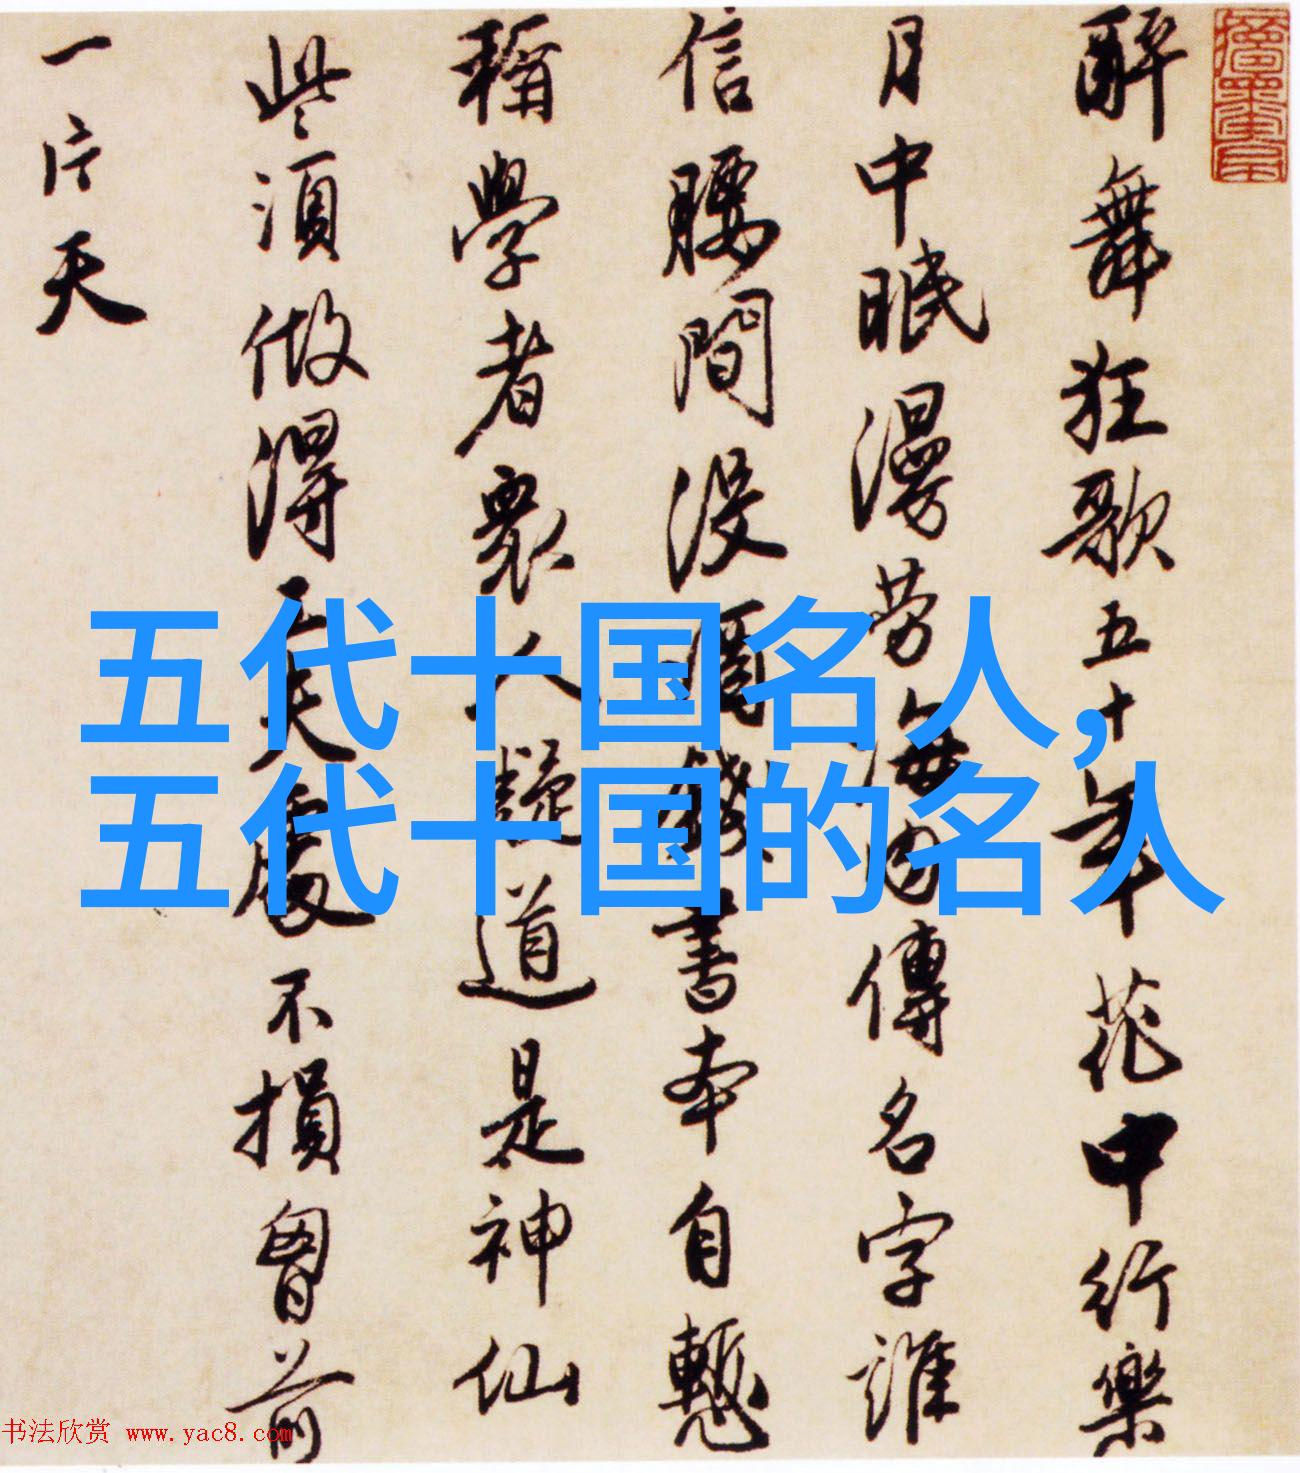 醉舞狂歌五十年花中行樂
月中眠漫勞海內傳名字誰
信腰間沒酒錢書本自慙
稱學者衆人疑道是神仙
些須做得工夫處不損胷前
一片天
五代十国名人,
五代十国的名人
书法欣赏 www.yac8.com